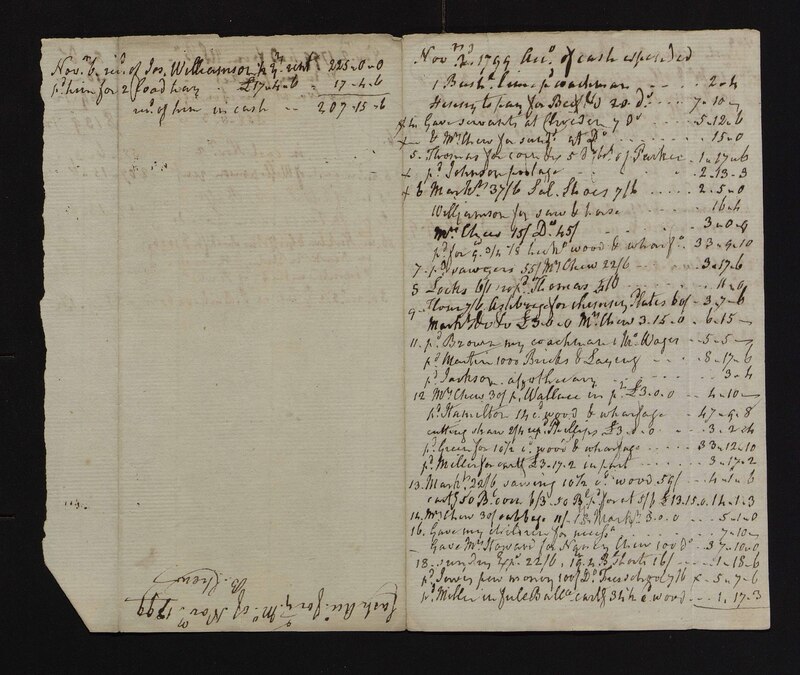 Nov.r 6. rec.d of Jos. Williamson 225-0-0
p.d him for 2 load hay £17-4-6 17-4-6
rec.d of him in cash 207-15-6
Cash Acc.t for y.e Mo of Nov.r 1799
B. Chew
Nov.r 1799 Acc.t of cash expended
1 Bush.l lime p.d coachman 2-4
Henry to pay for 20 D.o 7-10-
Gave servants at Cliveden 7 D.o 5-12-6
& Mrs Chew for D.o 15-0
5. Thomas for corn by 5 of Parker 1-17-6
x p.d Johnson postage 2-13-3
x 6 Mark.t 37/6 Sal. Shoes 7/6 2-5-0
Williamson for saw & horse 16-4
Mrs Chew 15/ D.o 45/ 3-0-0
p.d for wood & wharf.e 33-9-10
7. p.d sawyers 55/ Mrs Chew 22/6 3-17-6
8 Locks 6/ Thomas 11-0
9 Flour 7/6 for chimney Plates 60/ 3-7-6
Mark.t £3-0-0 Mrs Chew 3-15-0 6-15-
11. p.d Brown my coachman 1 Mo Wages 5-5-
p.d Martin 1000 Bricks & Laying 8-17-6
p.d Jackson apothecary 3-4
12 Mrs Chew 30/ p.d Wallace in p.t £3-0-0 4-10-
p.d Hamilton 14 c. wood & wharfage 47-9-8
cutting straw 2/4 Phillips £3-0-0 3-2-4
p.d Green for 10 1/2 c. wood & wharfage 33-12-10
p.d Miller for cart.g £3-17-2 in part 3-17-2
13. Mark.t 22/6 sawing 10 1/2 c. wood 59/ 4-1-6
cart.g 50 B. corn 6/3 50 B. p.d for at 5/6 £13.15.0 14-1-3
14. Mrs Chew 30/ cabbage 11/ Mark.t 3-0-0 5-1-0
16. Gave my children for 7-10-
Gave Mrs Howard for Nancy Chew 100 D.o 37-10-0
18. sundry Exp.s 22/6 Shorts 16/ 1-18-6
p.d Jones pew money 100/ D.o 7/6 x 5-7-6
p.d Miller in full Ball.e cart.g wood 1-17-3